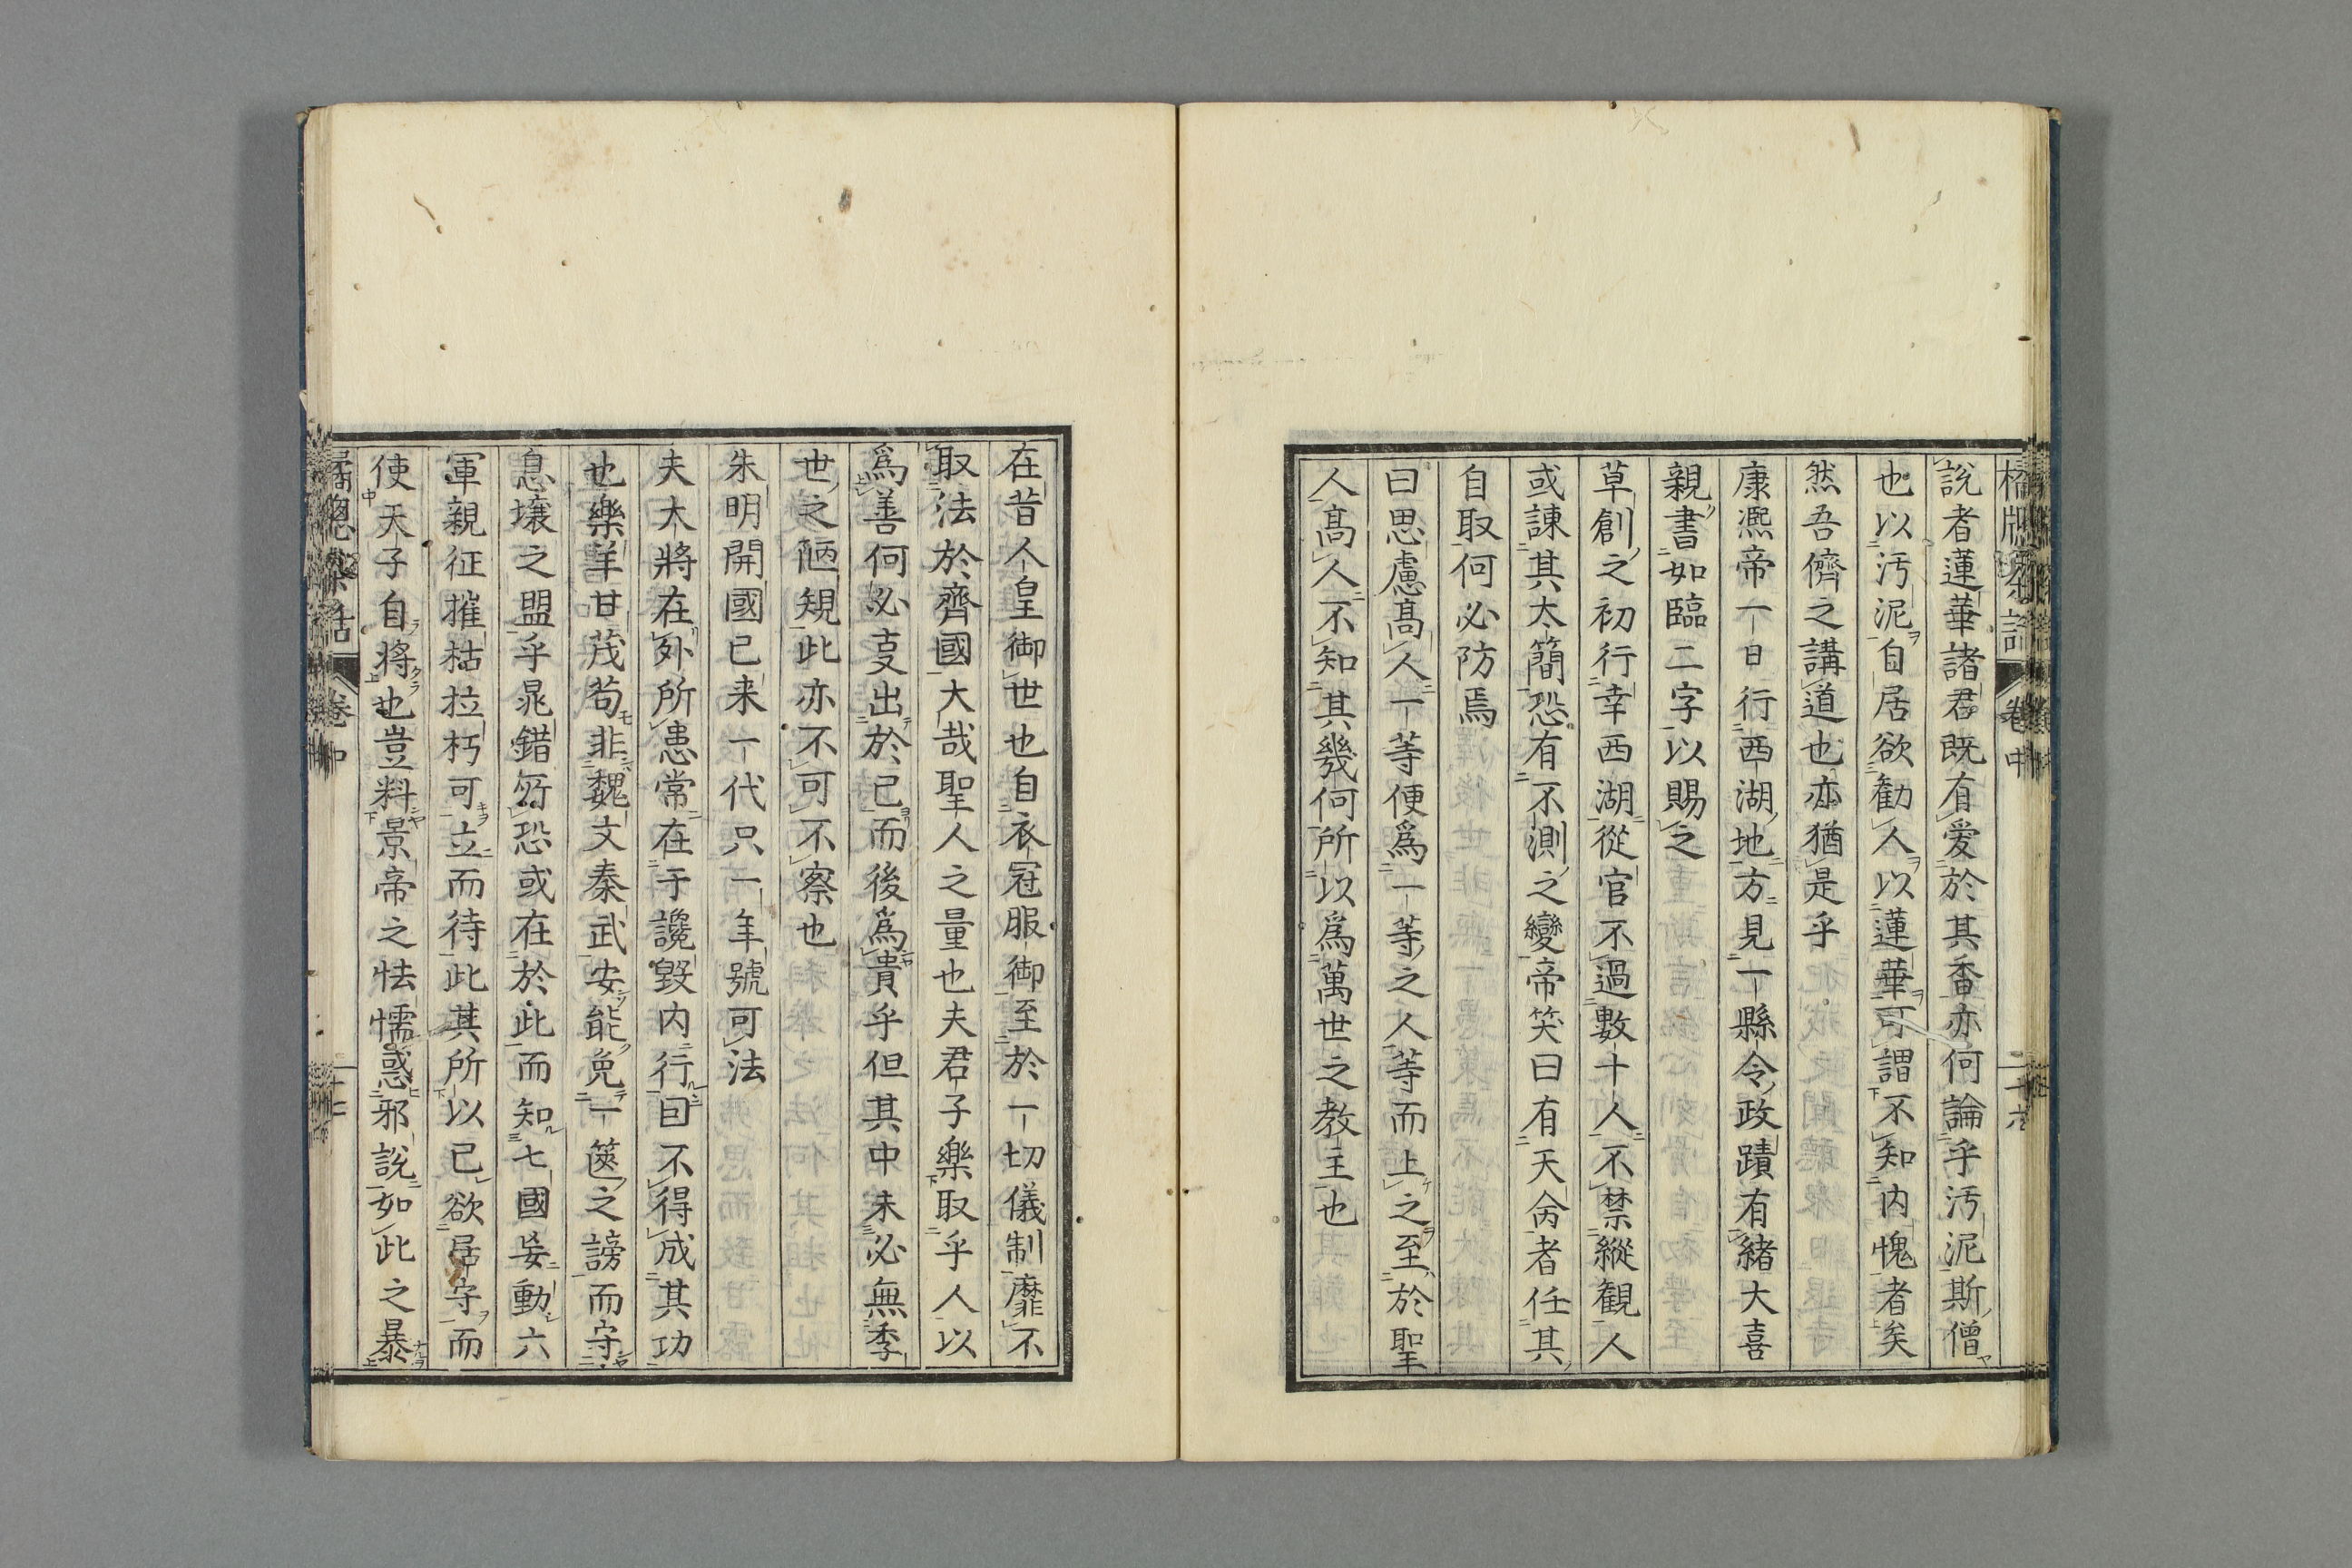 說者蓮華諸君既有爱於其香亦何論乎汚泥斯僧
也以汚泥自居欲勸人以蓮華可謂不知内愧者矣
然吾儕之講道也亦猶是乎
康凞帝一日行西湖地方見一縣令政蹟有緒大喜
親書如臨二字以賜之
草創之初行幸西湖從官不過數十人不禁縱観人
或諌其太簡恐有不測之變帝笑曰有天命者任其
自取何必防焉
曰思慮髙人一等便爲一等之人等而上之至於聖
人髙人不知其幾何所以爲萬世之教主也
在昔人皇御世也自衣冠服御至於一切儀制靡不
取法於齊國大哉聖人之量也夫君子樂取乎人以
爲善何必叓出於己而後爲貴乎但其中未必無季
世之陋䂓此亦不可不察也
朱明開國已来一代只一年號可法
夫大將在外所患常在于讒毀内行囙不得成其功
也樂羊甘茂苟非魏文秦武安能免一篋之謗而守
息壤之盟乎晁錯所恐或在於此而知七國妄動六
軍親征摧枯拉朽可立而待此其所以已欲居守而
使天子自將也豈料景帝之怯懦惑邪說如此之暴